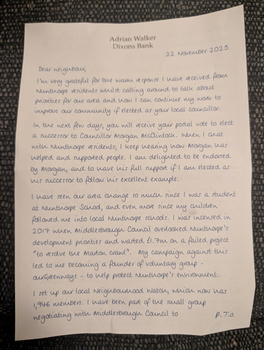 Adrian Walker
Dixons Bank
22 November 2023
Dear neighbour,
I'm very grateful for the warm response I have received from
Nunthorpe residents whilst calling around to talk about
priorities for our area and how I can continue my work to
improve our community if elected as your local councillor.
In the next few days, you will receive your postal vote to elect
a successor to Councillor Morgan McClintock. When I chat
with Nunthorpe residents, I keep hearing how Morgan has
helped and supported people. I am delighted to be endorsed
by Morgan, and to have his full support if I am elected as
his successor to follow his excellent example.
I have seen our area change so much since I was a student
at Nunthorpe School, and even more since my children
followed me into local Nunthorpe schools. I was incensed in
2017 when Middlesbrough Council overlooked Nunthorpe's
development priorities and wasted £1.7m on a failed project
"to revive the Marton Crawl". My campaign against this
led to me becoming a founder of voluntary group -
- to help protect Nunthorpe's environment.
I set up our local Neighbourhood Watch, which now has
1,946 members. I have been part of the small group
negotiating with Middlesbrough Council to
P.T.O